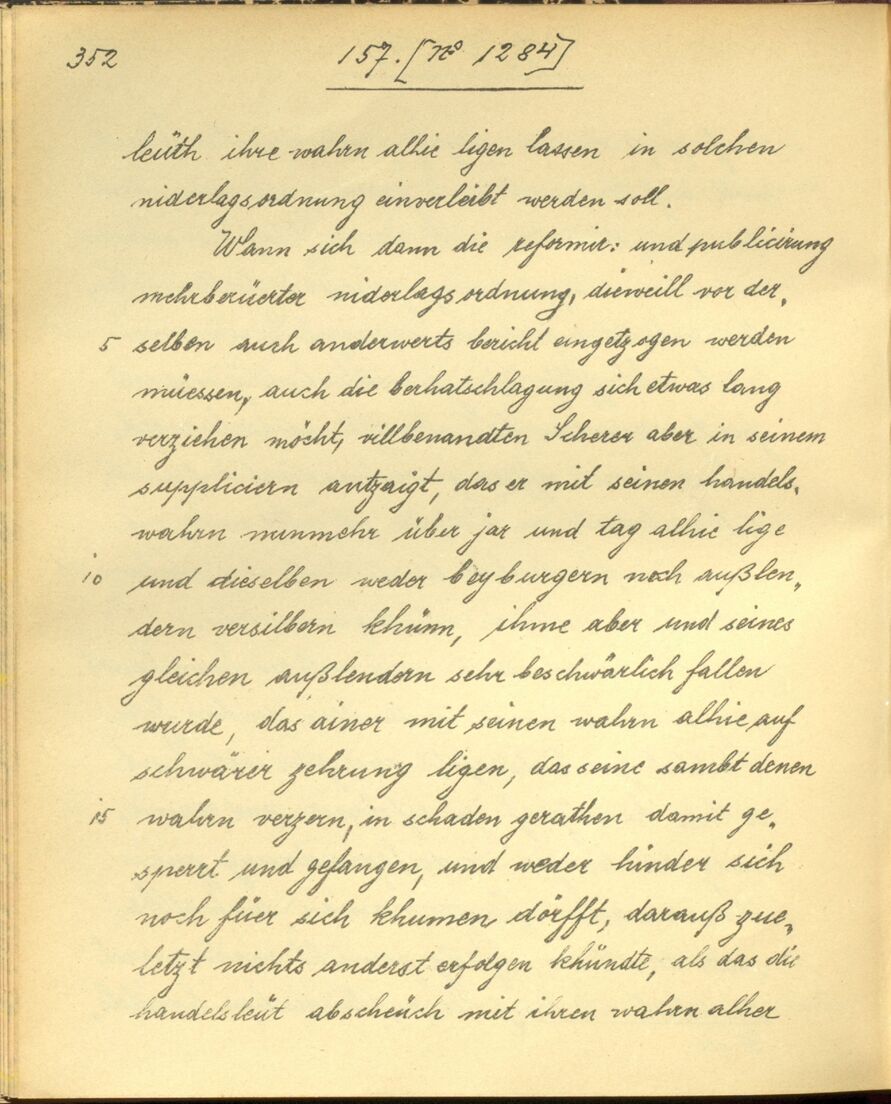 352
157. [Nº 1284]
leüth ihre wahrn alhie ligen lassen in solchen
niderlagsordnung einverleibt werden soll.
Wann sich dann die reformir: und publicirung
mehrberüerter niderlagsordnung, dieweill vor der„
5 selben auch anderwerts bericht eingetzogen werden
müessen, auch die berhatschlagung sich etwas lang
verziehen möcht, villbenandten Scherer aber in seinem
suppliciern antzaigt, das er mit seinen handels„
wahrn nunmehr über jar und tag alhie lige
10 und dieselben weder bey burgern noch außlen„
dern versilbern khünn, ihme aber und seines
gleichen außlendern sehr beschwärlich fallen
wurde, das ainer mit seinen wahrn alhie auf
schwärer zehrung ligen, das seine sambt denen
15 wahrn verzern, in schaden gerathen damit ge„
sperrt und gefangen, und weder hinder sich
noch füer sich khumen dörfft, darauß zue„
letzt nichts anderst erfolgen khündte, als das die
handelsleüt abscheüch mit ihren wahrn alher